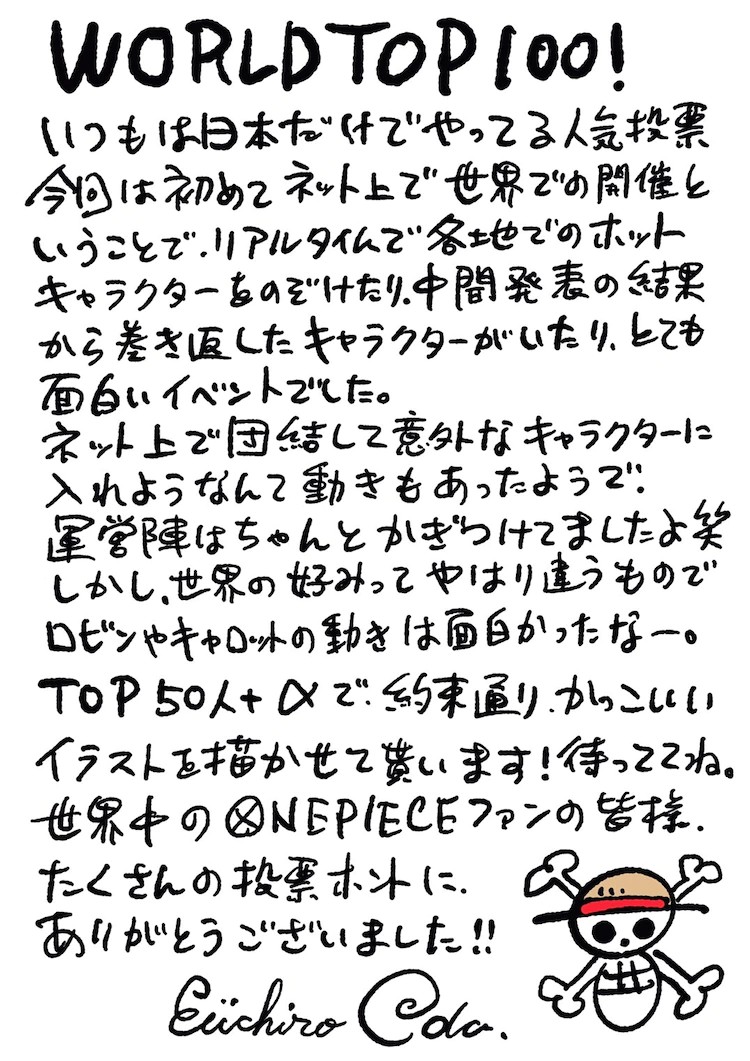 WORLD TOP 100!
いつもは日本だけでやってる人気投票
今回は初めてネット上で世界での開催と
いうことで、リアルタイムで各地でのホット
キャラクターをのぞけたり、中間発表の結果
から巻き返したキャラクターがいたり、とても
面白いイベントでした。
ネット上で団結して意外なキャラクターに
入れようなんて動きもあったようで、
運営陣はちゃんとかぎつけてましたよ笑
しかし、世界の好みってやはり違うもので
ロビンやキャロットの動きは面白かったなー。
TOP50人+αで、約束通り、かっこいい
イラストを描かせて貰います!待っててね。
世界中のONEPIECEファンの皆様、
たくさんの投票ホントに、
ありがとうございました!!
Eiichiro Oda.